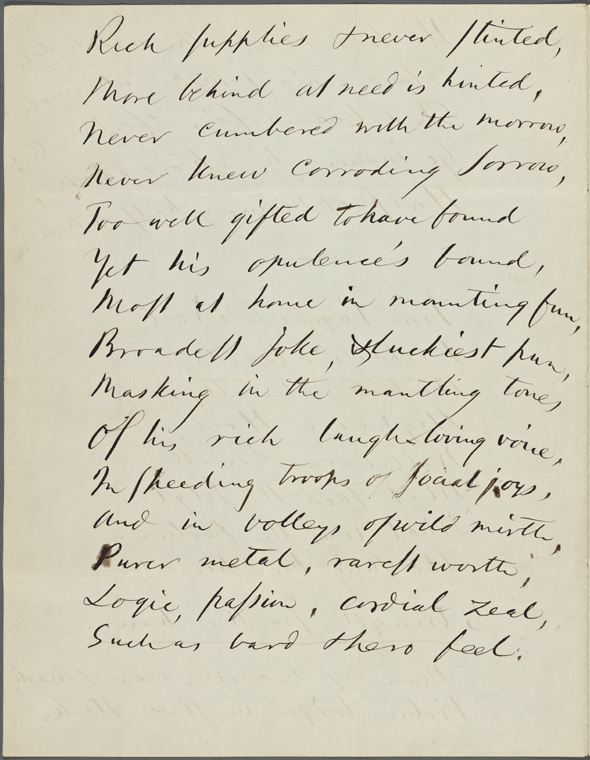 Rich supplies & never stinted,
More behind at need is hinted,
Never cumbered with the morrow,
Never knew corroding sorrow,
Too well gifted to have found
Yet his opulence's bound,
Most at home in mounting fun,
Broadest joke, & luckiest pun,
Masking in the mantling tones
Of his rich laugh-loving voice,
In speeding troops of social joys,
And in volleys of wild mirth,
Purer metal, rarest worth,
Logic, passion, cordial zeal,
Such as bard & hero feel.